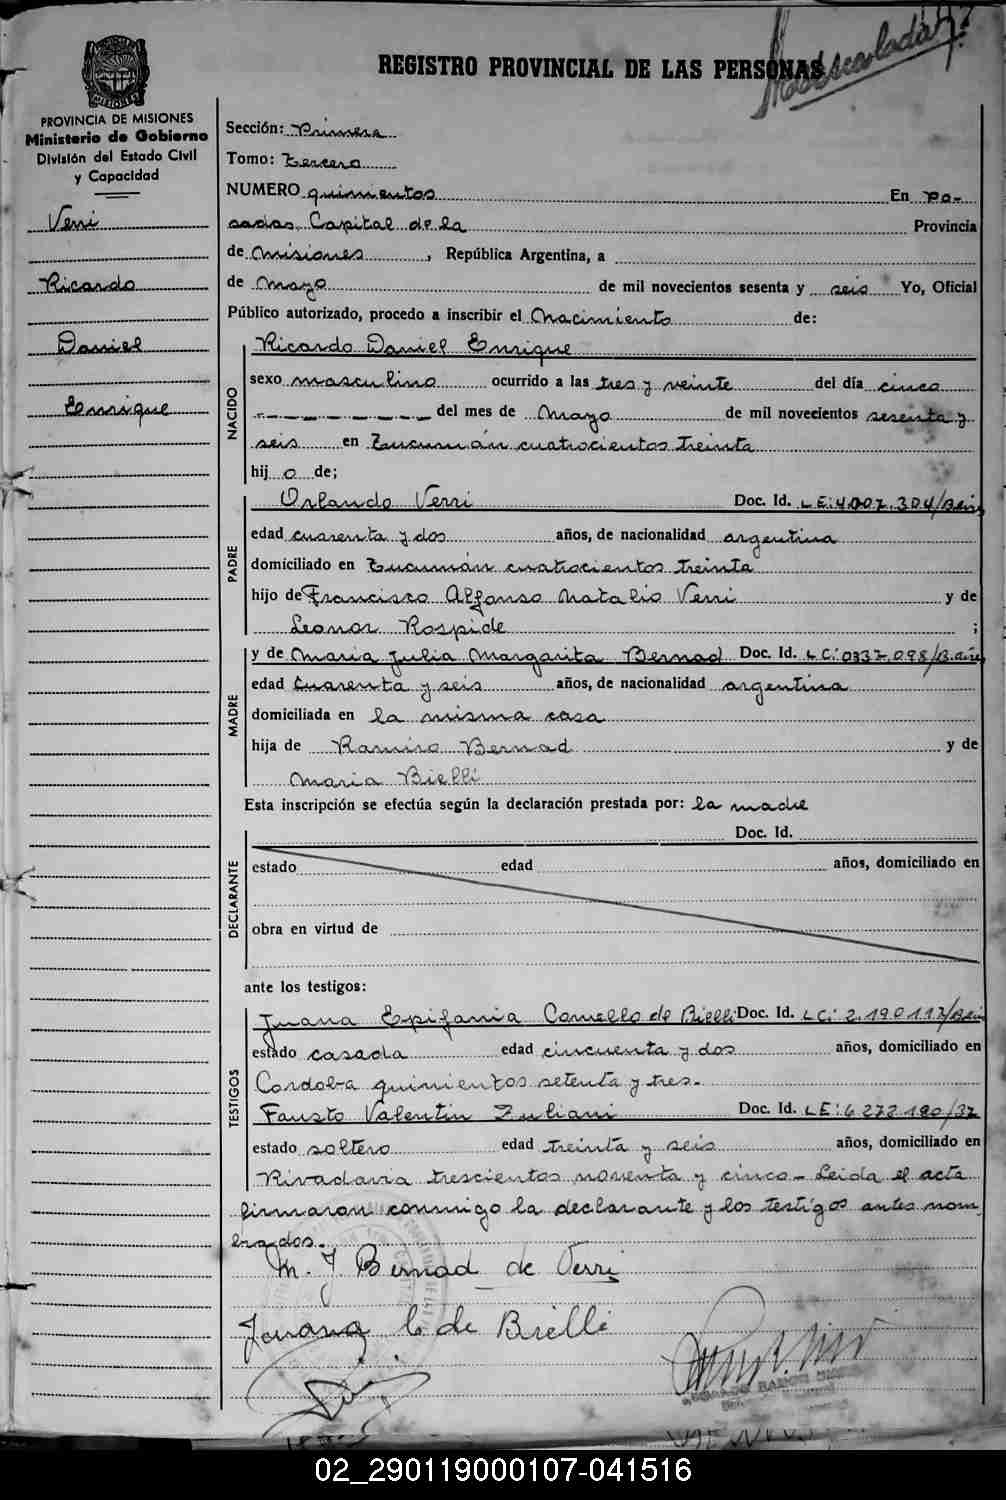 REGISTRO PROVINCIAL DE LAS PERSONAS
PROVINCIA DE MISIONES
Ministerio de Gobierno
División del Estado Civil
y Capacidad
Verri
Ricardo
Daniel
Enrique
Sección: Primera
Tomo: tercero
NUMERO quinientos En Po-
sadas, Capital de la Provincia
de Misiones, República Argentina, a
de Mayo de mil novecientos sesenta y seis Yo, Oficial
Público autorizado, procedo a inscribir el Nacimiento de:
NACIDO
Ricardo Daniel Enrique
sexo masculino ocurrido a las tres y veinte del día cinco
del mes de Mayo de mil novecientos sesenta y
seis en Tucumán cuatrocientos treinta
hijo de;
PADRE
Orlando Verri Doc. Id. LE:4.007.304
edad cuarenta y dos años, de nacionalidad argentina
domiciliado en Tucumán cuatrocientos treinta
hijo de Francisco Alfonso Natalio Verri y de
Leonor Rospide ;
MADRE
y de Maria Julia Margarita Bernad Doc. Id. LC:0337.098/B.aires
edad cuarenta y seis años, de nacionalidad argentina
domiciliada en la misma casa
hija de Ramiro Bernad y de
Maria Bielli
Esta inscripción se efectúa según la declaración prestada por: la madre
DECLARANTE
Doc. Id.
estado edad años, domiciliado en
obra en virtud de
ante los testigos:
TESTIGOS
Juana Epifania Comello de Bielli Doc. Id. LC: 2.190.117
estado casada edad cincuenta y dos años, domiciliado en
Cordoba quinientos setenta y tres.
Fausto Valentin Zuliani Doc. Id. LE:6.272.190/37
estado soltero edad treinta y seis años, domiciliado en
Rivadavia trescientos noventa y cinco - Leida el acta
firmaron conmigo la declarante y los testigos antes nom-
brados.
M. J Bernad de Verri
Juana C de Bielli
02_290119000107-041516